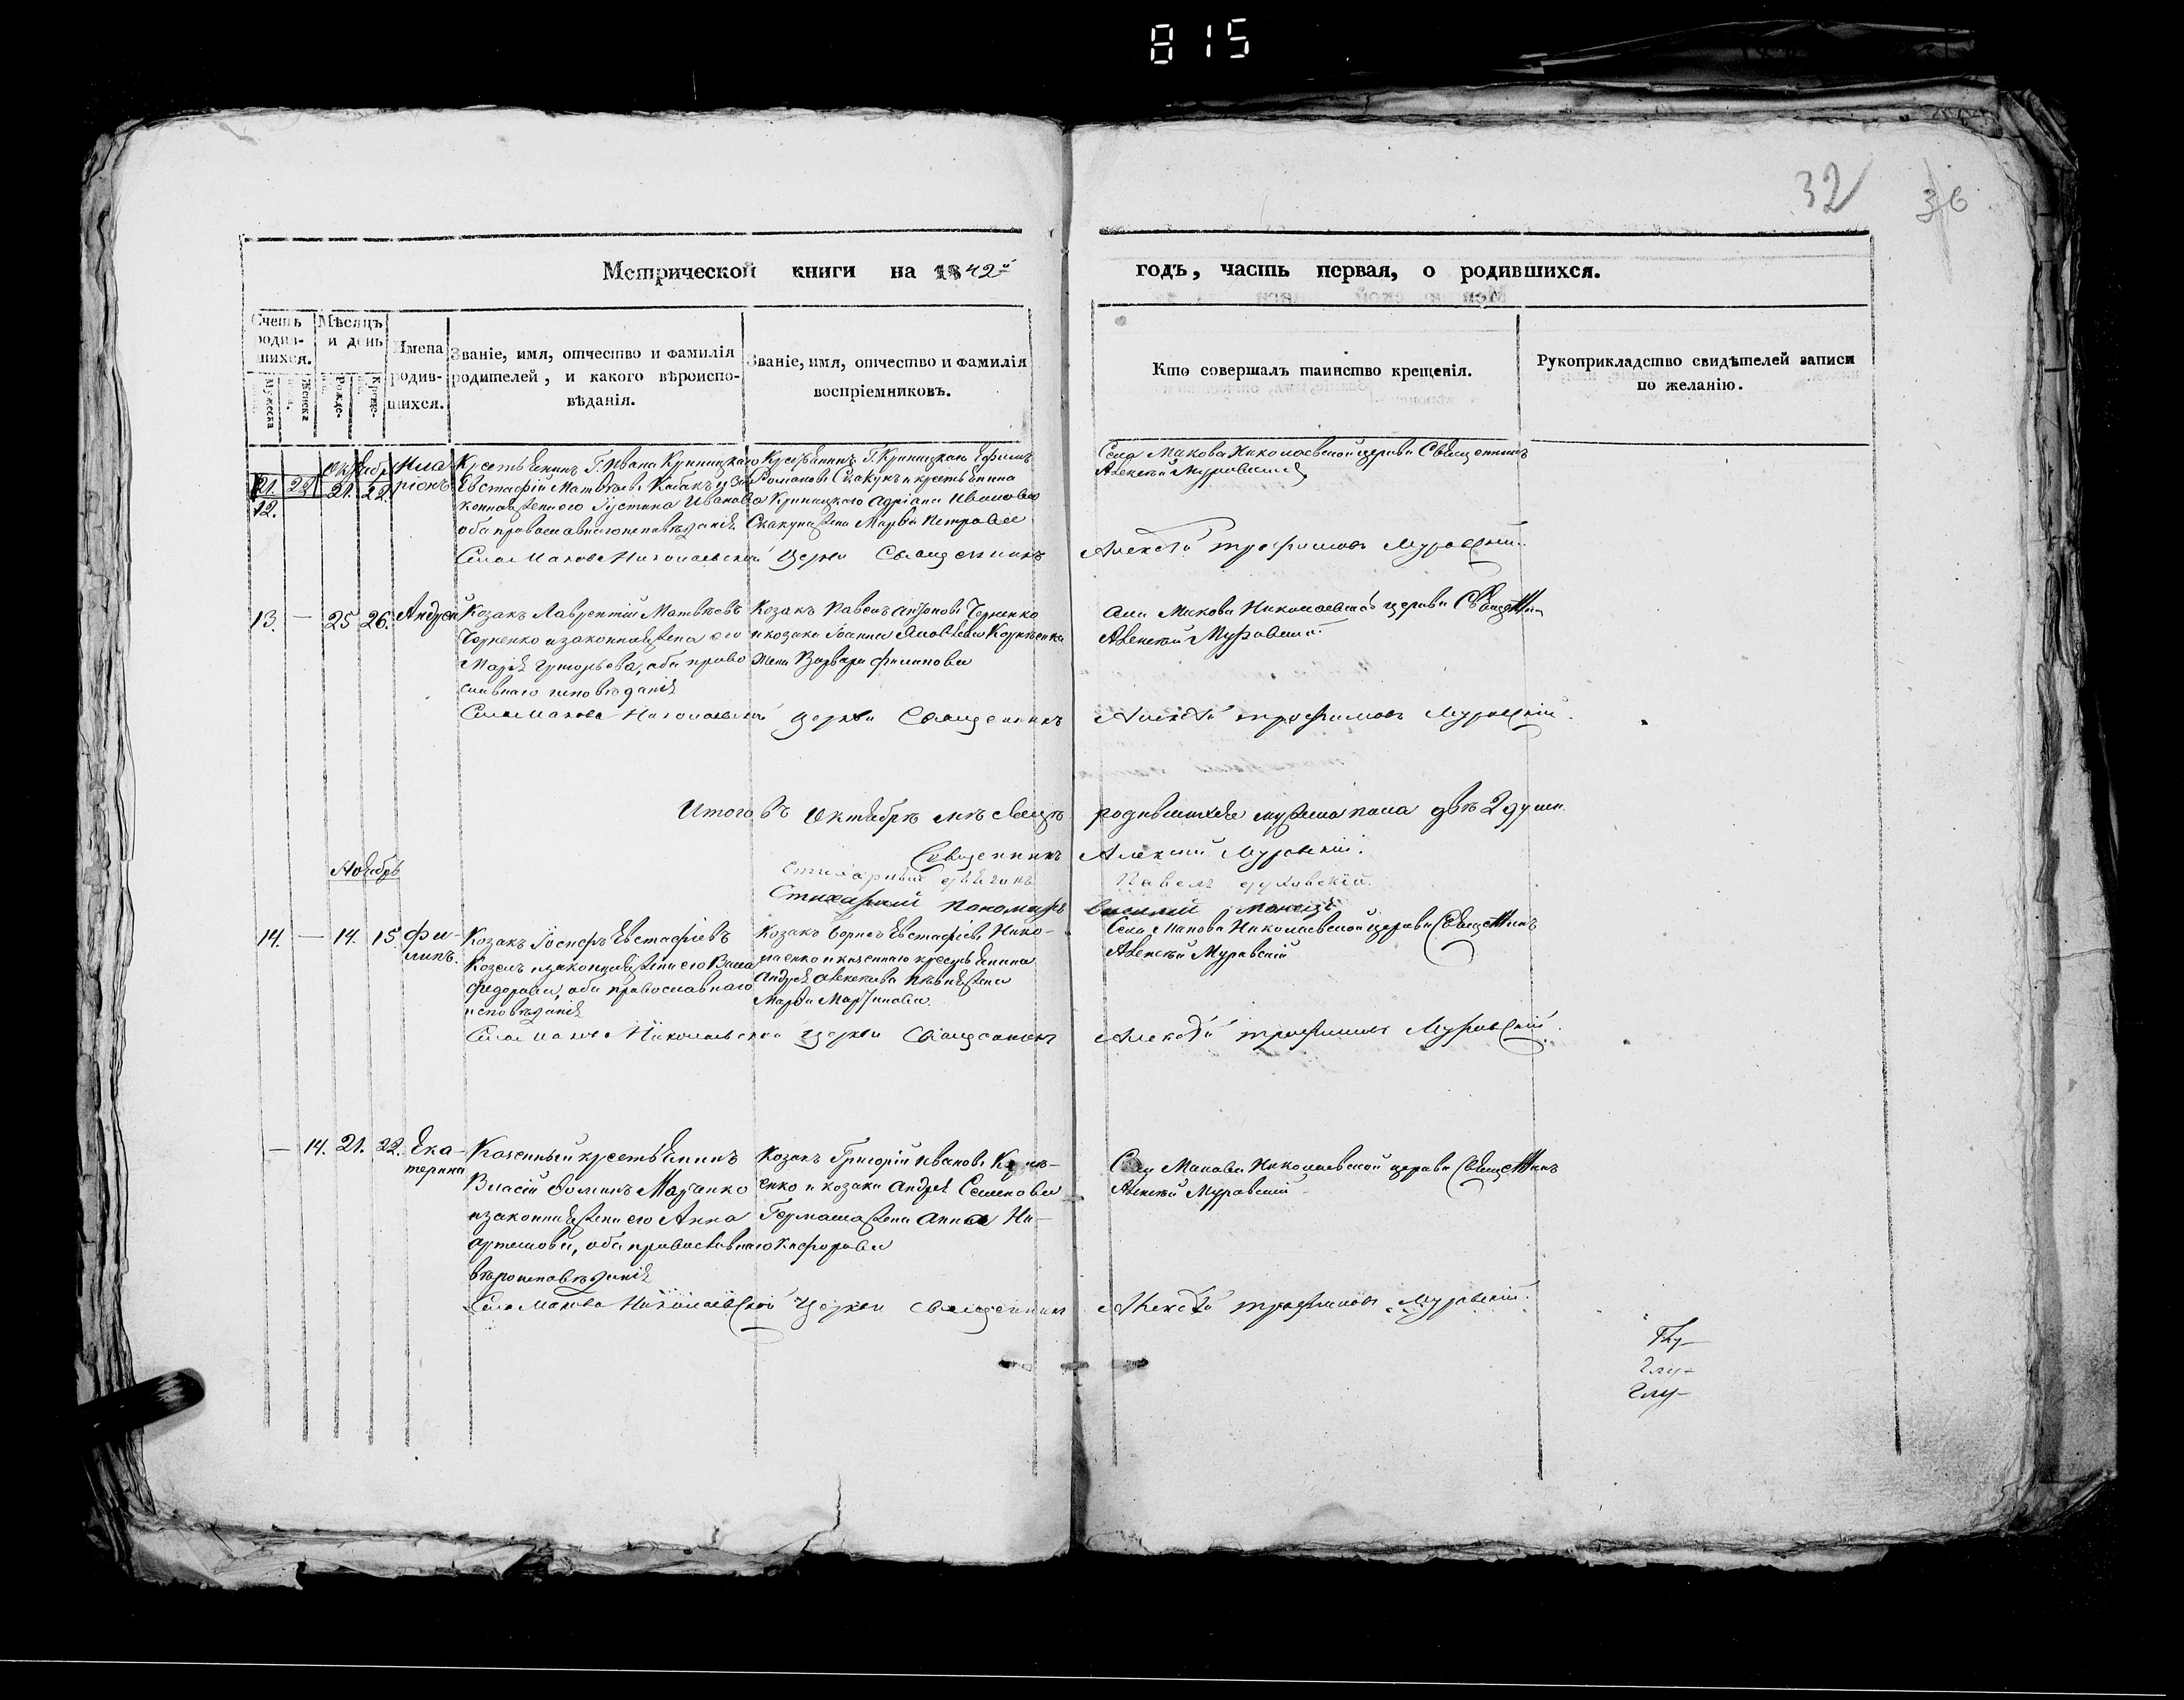 815
32
36
Метрической книги на 1842й годъ, часть первая, о родившихся.
Счетъ родив-
шихся.
Мѣсяцъ
и день
Имена
родив-
шихся.
Званіе, имя, отчество и фамилія
родителей, и какого вѣроиспо-
вѣданія.
Званіе, имя, отчество и фамилія
воспріемниковъ.
Кто совершалъ таинство крещенія.
Рукоприкладство свидѣтелей записи
по желанію.
Мужеска
Женска
Рожде-
Креще-
Октябрь
12.
21. 22.
Ила
ріонъ
Крестьянинъ Г. Ивана Криницкаго
Евстафій Матвѣевъ
жена его Іустина Иванова
оба православнаго исповѣданія
Крестьянинъ Г. Криницкаго Ефимъ
Романовъ Скакунъ и крестьянина
Криницкаго Адріана Иванова
Скакуна жена Марѳа Петрова
Села Макова Николаевской церкви Священникъ
Алексѣй Муравскій
Села Макова Николаевской Церкви Священникъ Алексѣй Трофимовъ Муравскій.
13. — 25 26. Андрей
Козакъ Лаврентій Матвѣевъ
Черненко и законная жена его
Марія Григорьева, оба право
славнаго исповѣданія
Козакъ Павелъ Антоновъ Черненко
и козака Іоанна Яковлева
жена Варвара Филипова
Села Макова Николаевской церкви Священникъ
Алексѣй Муравскій.
Села Макова Николаевской Церкви Священникъ Алексѣй Трофимовъ Муравскій.
Итого въ Октябрѣ мѣсяцѣ родившихся мужеска пола двѣ 2 души.
Священникъ Алексѣй Муравскій.
Стихарный дьячокъ Павелъ
Стихарный пономарь Василій
Ноябрь
14. — 14. 15. Фи-
липъ.
Козакъ Іосифъ Евстафіевъ
Козелъ и законная жена его Васса
Федорова, оба православнаго
исповѣданія
Козакъ Борисъ Евстафіевъ Нико-
лаенко и казеннаго крестьянина
Андрея Алексѣева жена
Марѳа Мартинова.
Села Макова Николаевской церкви Священникъ
Алексѣй Муравскій
Села Макова Николаевской Церкви Священникъ Алексѣй Трофимовъ Муравскій.
— 14. 21. 22. Ека-
терина
Казенный крестьянинъ
Власій Фоминъ Марченко
и законная жена его Анна
Артемова, оба православнаго
вѣроисповѣданія
Козакъ Григорій Ивановъ
енко и козака Андрея Семенова
жена Анна Ни-
кифорова
Села Макова Николаевской церкви Священникъ
Алексѣй Муравскій
Села Макова Николаевской Церкви Священникъ Алексѣй Трофимовъ Муравскій.
Глу-
Глу-
Глу-